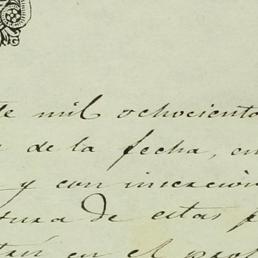 de mil ochociento
de la fecha, en
y con inserción
tura de estas p
en el prot